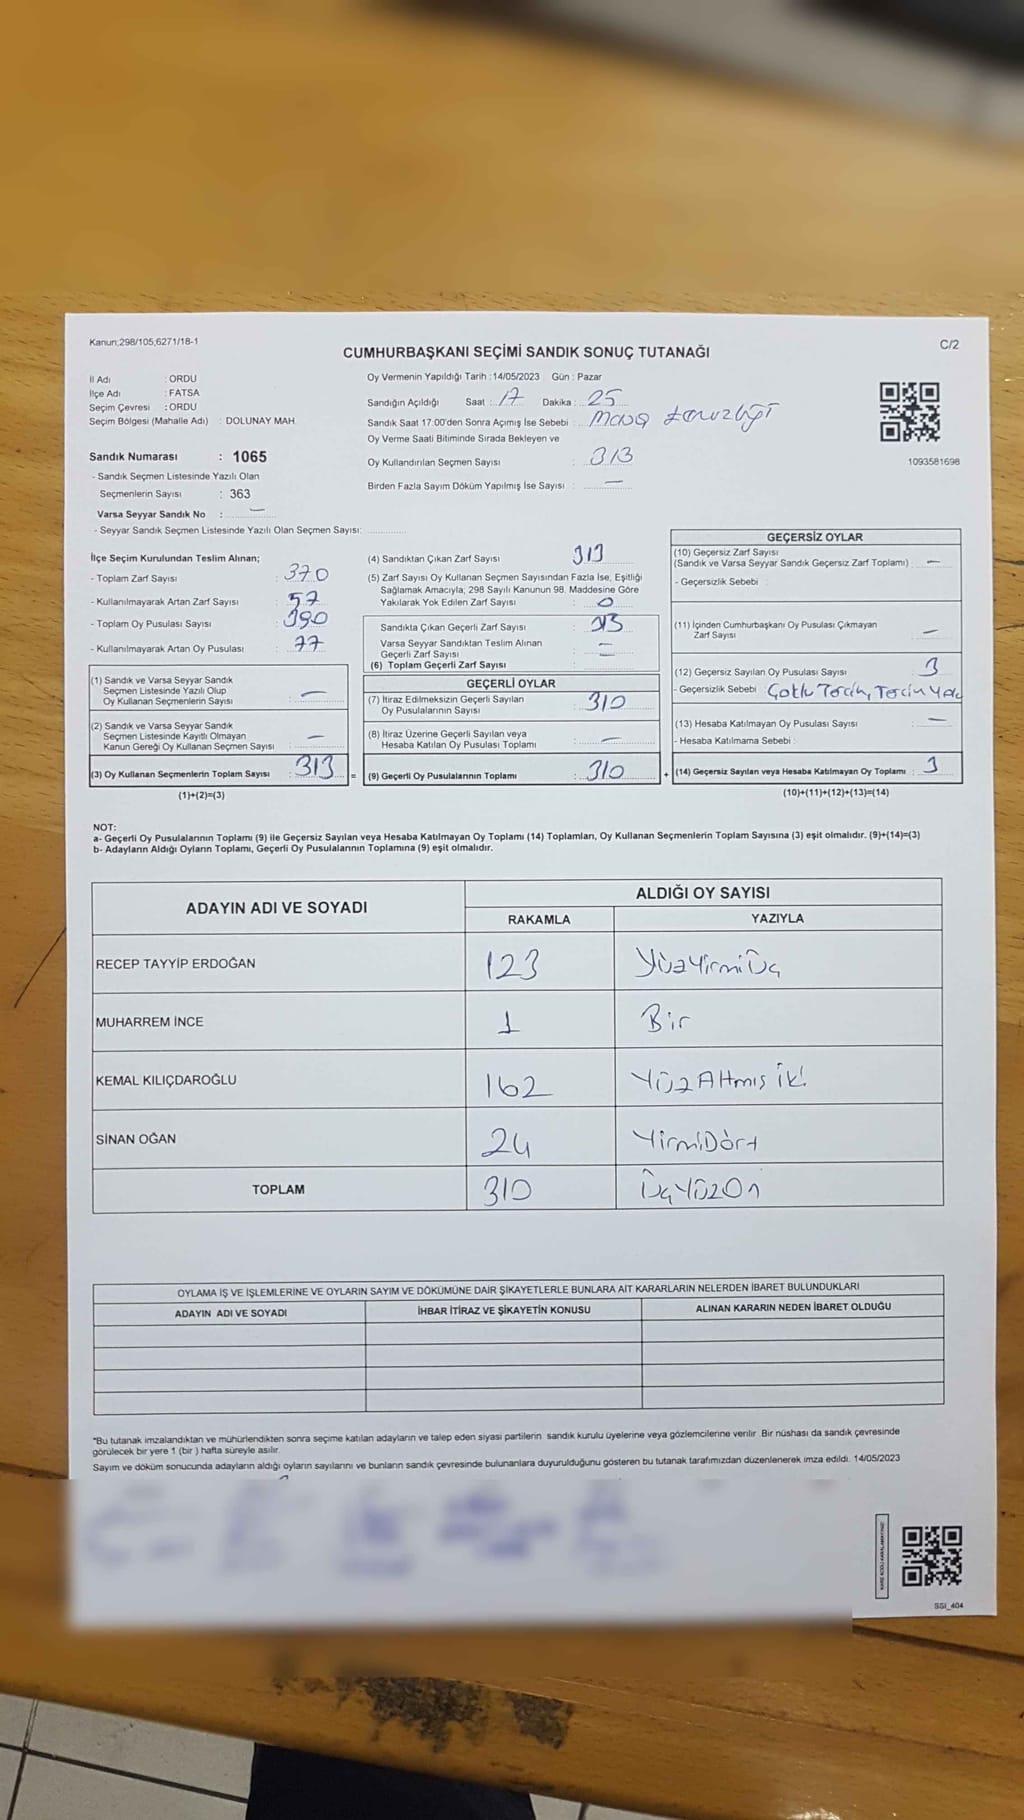 Kanun;298/105,6271/18-1
C/2
CUMHURBAŞKANI SEÇİMİ SANDIK SONUÇ TUTANAĞI
İl Adı : ORDU
İlçe Adı : FATSA
Seçim Çevresi : ORDU
Seçim Bölgesi (Mahalle Adı) : DOLUNAY MAH.
Sandık Numarası : 1065
- Sandık Seçmen Listesinde Yazılı Olan
Seçmenlerin Sayısı : 363
Varsa Seyyar Sandık No : —
- Seyyar Sandık Seçmen Listesinde Yazılı Olan Seçmen Sayısı:
Oy Vermenin Yapıldığı Tarih :14/05/2023 Gün : Pazar
Sandığın Açıldığı Saat : 17 Dakika : 25
Sandık Saat 17.00'den Sonra Açımış İse Sebebi :
Oy Verme Saati Bitiminde Sırada Bekleyen ve
Oy Kullandırılan Seçmen Sayısı : 313
Birden Fazla Sayım Döküm Yapılmış İse Sayısı : —
1093581698
İlçe Seçim Kurulundan Teslim Alınan;
- Toplam Zarf Sayısı : 370
- Kullanılmayarak Artan Zarf Sayısı : 57
- Toplam Oy Pusulası Sayısı : 390
- Kullanılmayarak Artan Oy Pusulası : 77
(1) Sandık ve Varsa Seyyar Sandık
Seçmen Listesinde Yazılı Olup
Oy Kullanan Seçmenlerin Sayısı : —
(2) Sandık ve Varsa Seyyar Sandık
Seçmen Listesinde Kayıtlı Olmayan
Kanun Gereği Oy Kullanan Seçmen Sayısı : —
(3) Oy Kullanan Seçmenlerin Toplam Sayısı : 313 =
(1)+(2)=(3)
(4) Sandıktan Çıkan Zarf Sayısı : 313
(5) Zarf Sayısı Oy Kullanan Seçmen Sayısından Fazla İse, Eşitliği
Sağlamak Amacıyla; 298 Sayılı Kanunun 98. Maddesine Göre
Yakılarak Yok Edilen Zarf Sayısı : 0
Sandıkta Çıkan Geçerli Zarf Sayısı : 313
Varsa Seyyar Sandıktan Teslim Alınan
Geçerli Zarf Sayısı : —
(6) Toplam Geçerli Zarf Sayısı : —
GEÇERLİ OYLAR
(7) İtiraz Edilmeksizin Geçerli Sayılan
Oy Pusulalarının Sayısı : 310
(8) İtiraz Üzerine Geçerli Sayılan veya
Hesaba Katılan Oy Pusulası Toplamı : —
(9) Geçerli Oy Pusulalarının Toplamı : 310 +
GEÇERSİZ OYLAR
(10) Geçersiz Zarf Sayısı
(Sandık ve Varsa Seyyar Sandık Geçersiz Zarf Toplamı) : —
- Geçersizlik Sebebi :
(11) İçinden Cumhurbaşkanı Oy Pusulası Çıkmayan
Zarf Sayısı : —
(12) Geçersiz Sayılan Oy Pusulası Sayısı : 3
- Geçersizlik Sebebi : Çoklu Tercih, Tercih Yok
(13) Hesaba Katılmayan Oy Pusulası Sayısı : —
- Hesaba Katılmama Sebebi :
(14) Geçersiz Sayılan veya Hesaba Katılmayan Oy Toplamı : 3
(10)+(11)+(12)+(13)=(14)
NOT:
a- Geçerli Oy Pusulalarının Toplamı (9) ile Geçersiz Sayılan veya Hesaba Katılmayan Oy Toplamı (14) Toplamları, Oy Kullanan Seçmenlerin Toplam Sayısına (3) eşit olmalıdır. (9)+(14)=(3)
b- Adayların Aldığı Oyların Toplamı, Geçerli Oy Pusulalarının Toplamına (9) eşit olmalıdır.
ADAYIN ADI VE SOYADI ALDIĞI OY SAYISI
RAKAMLA YAZIYLA
RECEP TAYYİP ERDOĞAN 123 YüzYirmiÜç
MUHARREM İNCE 1 Bir
KEMAL KILIÇDAROĞLU 162 YüzAltmış İki
SİNAN OĞAN 24 YirmiDört
TOPLAM 310 ÜçYüzOn
OYLAMA İŞ VE İŞLEMLERİNE VE OYLARIN SAYIM VE DÖKÜMÜNE DAİR ŞİKAYETLERLE BUNLARA AİT KARARLARIN NELERDEN İBARET BULUNDUKLARI
ADAYIN ADI VE SOYADI İHBAR İTİRAZ VE ŞİKAYETİN KONUSU ALINAN KARARIN NEDEN İBARET OLDUĞU
*Bu tutanak imzalandıktan ve mühürlendikten sonra seçime katılan adayların ve talep eden siyasi partilerin sandık kurulu üyelerine veya gözlemcilerine verilir. Bir nüshası da sandık çevresinde
görülecek bir yere 1 (bir ) hafta süreyle asılır.
Sayım ve döküm sonucunda adayların aldığı oyların sayılarını ve bunların sandık çevresinde bulunanlara duyurulduğunu gösteren bu tutanak tarafımızdan düzenlenerek imza edildi. 14/05/2023
SSI_404